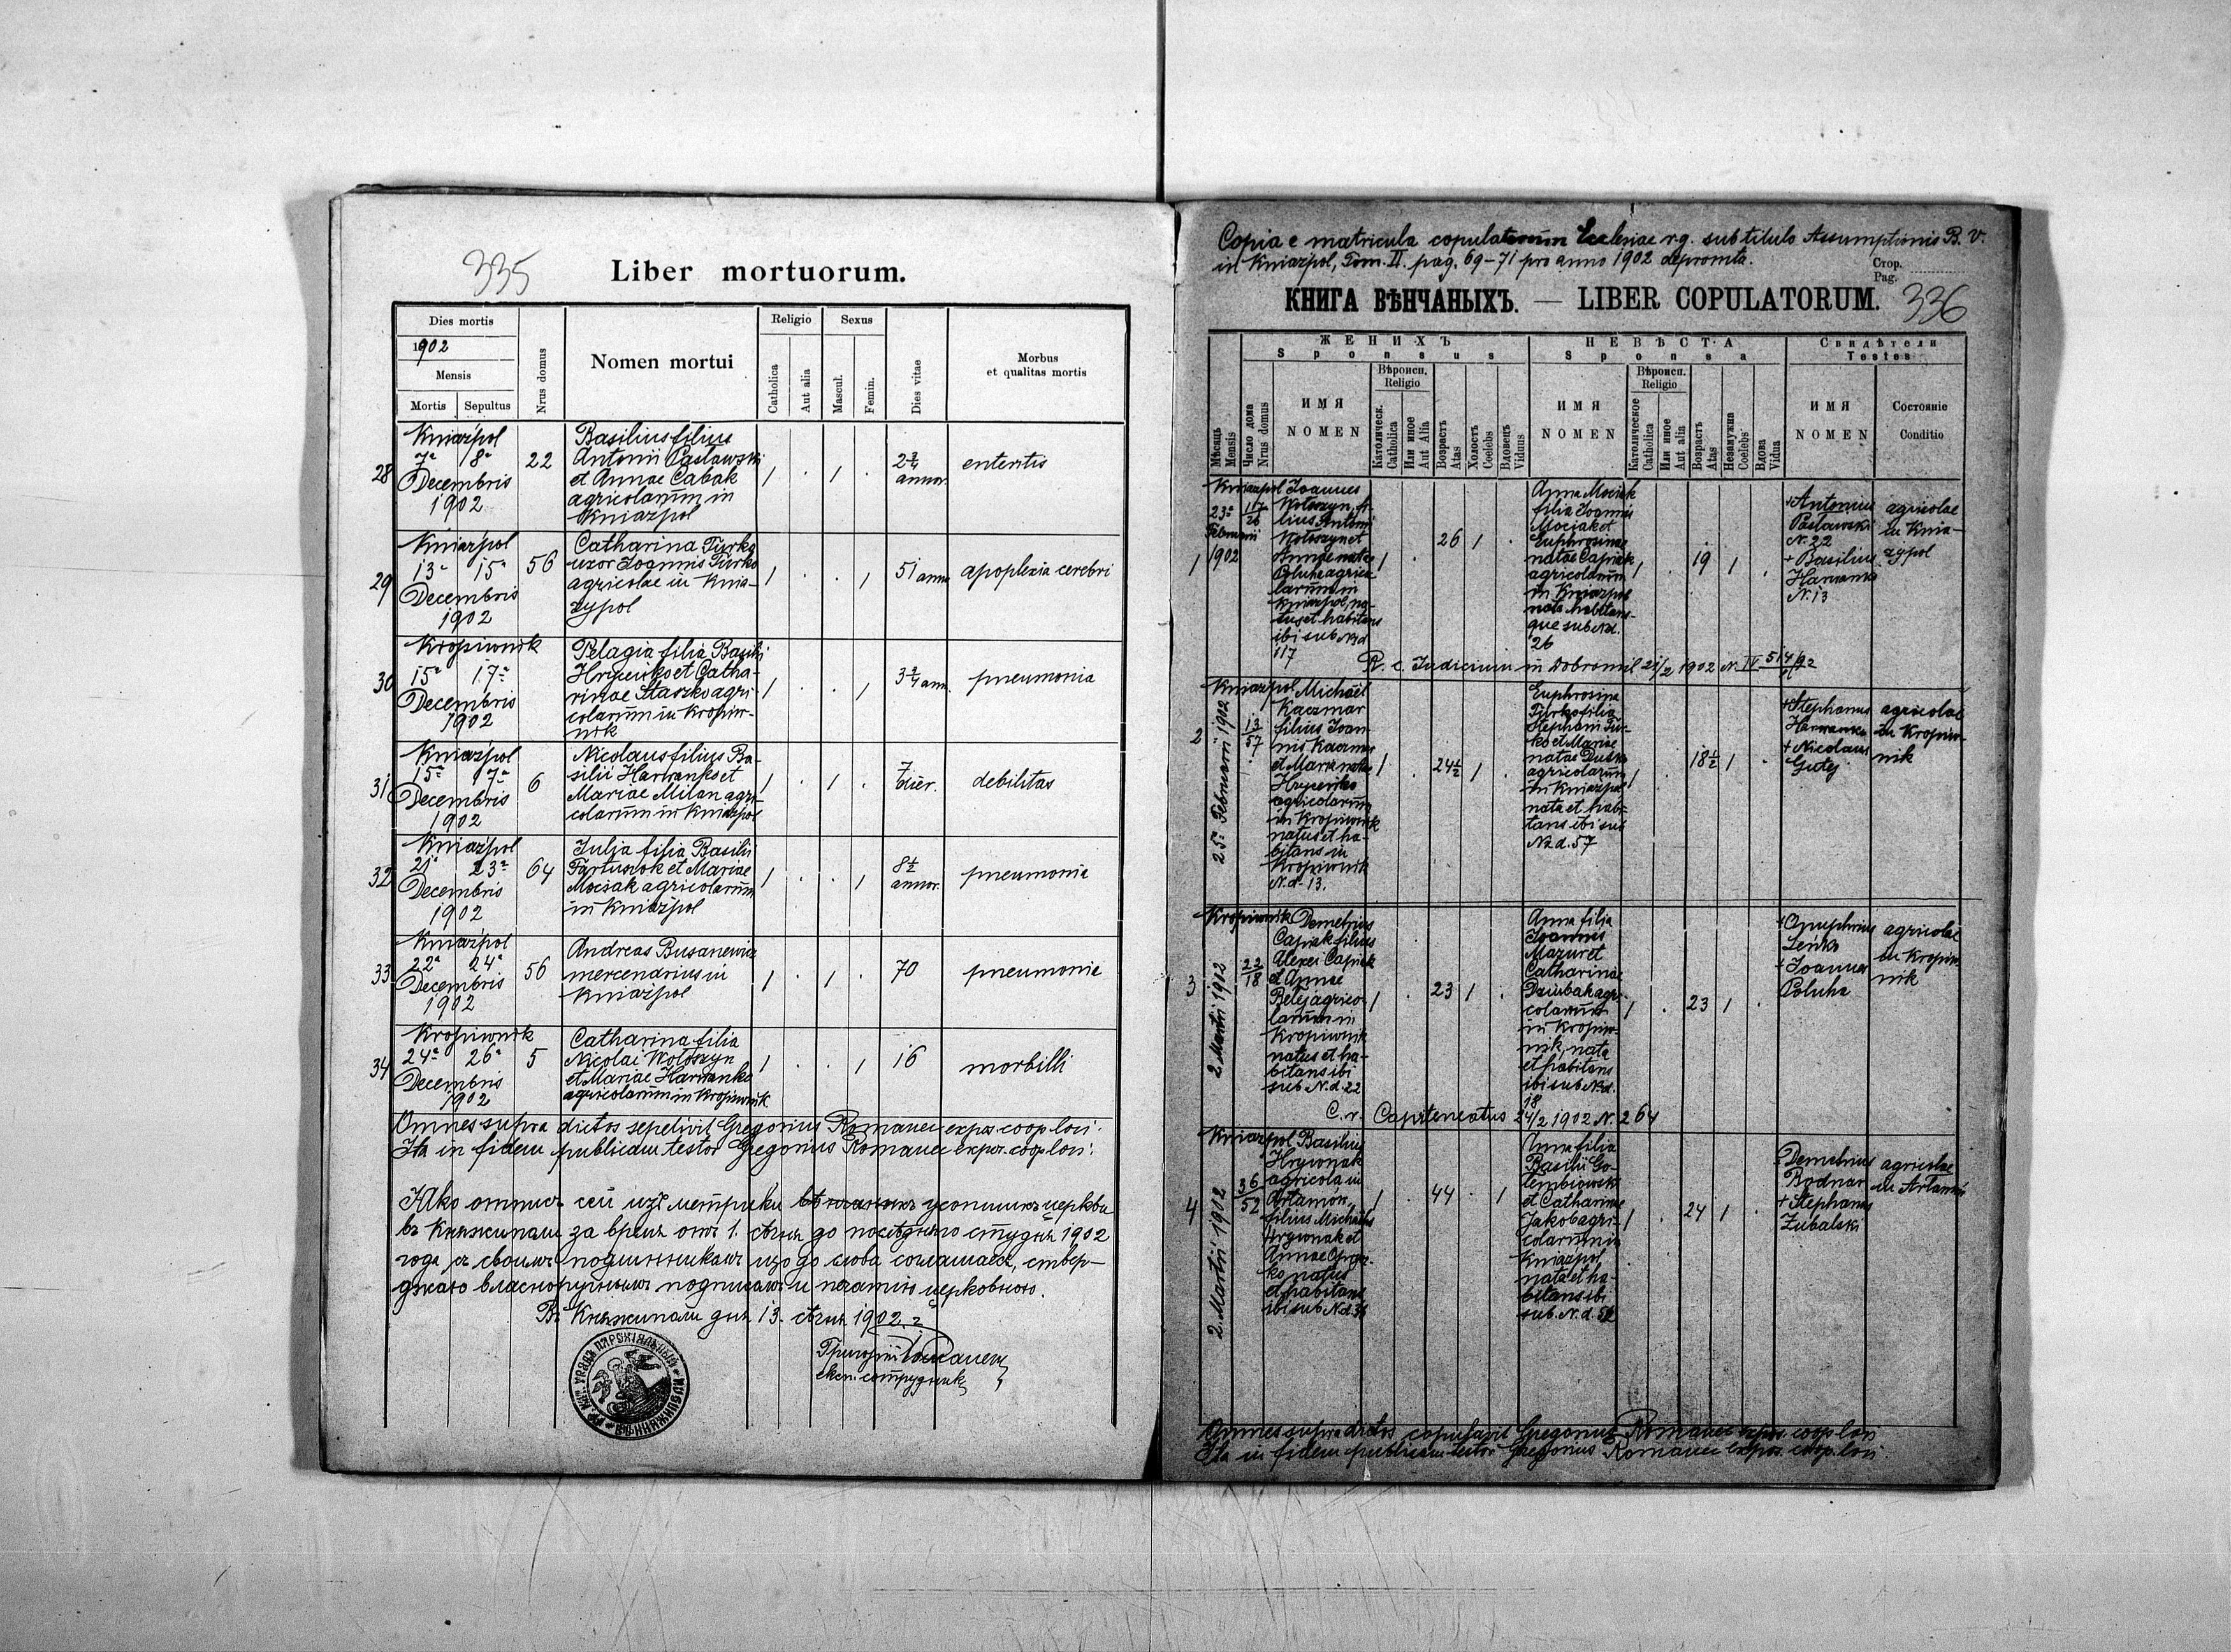 335
Liber mortuorum.
Dies mortis
1902
Mensis
Mortis Sepultus
Nrus domus
Nomen mortui
Religio
Catholica
Aut alia
Sexus
Mascul.
Femin.
Dies vitae
Morbus
et qualitas mortis
28
Kniaźpol
7a 8a
Decembris
1902
22
Basilius filius
Antonii Pasławski
et Annae Cabak
agricolarum in
Kniaźpol
1 . 1 .
2 3/4
annor.
enteritis
29
Kniaźpol
13a 15a
Decembris
1902
56
Catharina Turko
uxor Joannis Turko
agricolae in Knia-
zypol
1 . . 1
51 ann.
apoplexia cerebri
30
Kropiwnik
15a 17a
Decembris
1902
Pelagia filia Basilii
Hryceńko et Catha-
rinae Staszko agri-
colarum in Kropiw-
nik
1 . . 1
3 3/4 ann.
pneumonia
31
Kniaźpol
15a 17a
Decembris
1902
6
Nicolaus filius Ba-
silii Harwanko et
Mariae Milan agri-
colarum in Kniaźpol
1 . 1 .
7
dier.
debilitas
32
Kniaźpol
21a 23a
Decembris
1902
64
Julia filia Basilii
et Mariae
Mociak agricolarum
in Kniaźpol
1 . . 1
8 1/2
annor.
pneumonia
33
Kniaźpol
22a 24a
Decembris
1902
56
Andreas Busanewicz
mercenarius in
Kniaźpol
1 . 1 .
70
pneumonia
34
Kropiwnik
24a 26a
Decembris
1902
5
Catharina filia
Nicolai Wołoszyn
et Mariae Harwanko
agricolarum in Kropiwnik
1 . . 1
16
morbilli
Omnes supra dictos sepelivit Gregorius Romanec expos. coop. loci.
Ita in fidem publicam testor Gregorius Romanec expos. coop. loci.
Яко отписъ сей изъ метрики усопшихъ церкви
въ Княжполи за время отъ 1. сѣчня до послѣдняго студня 1902
года съ своимъ подлинникомъ що до слова соглашаеся, ствер-
джаю власноручнымъ подписомъ и печатію церковною.
Въ Княжполи дня 13. сѣчня 1902.
Григорій Романец
експ. сотрудник
Copia e matricula copulatorum Ecclesiae r.g. sub titulo Assumptionis B. V.
in Kniaźpol, Tom. II. pag. 69-71 pro anno 1902 depromta.
Стор.
Pag.
336
КНИГА ВѢНЧАНЫХЪ. — LIBER COPULATORUM.
Мѣсяць
Mensis
Число дома
Nrus domus
ЖЕНИХЪ
Sponsus
ИМЯ
NOMEN
Вѣроисп.
Religio
Католическ.
Catholica
Или иное
Aut Alia
Возрастъ
Atas
Холостъ
Coelebs
Вдовецъ
Viduus
НЕВѢСТА
Sponsa
ИМЯ
NOMEN
Вѣроисп.
Religio
Католическое
Catholica
Или иное
Aut alia
Возрастъ
Atas
Незамужна
Coelebs
Вдова
Vidua
Свидѣтели
Testes
ИМЯ
NOMEN
Состояніе
Conditio
1
Kniaźpol
23a
Februarii
1902
117/26
Joannes
Wołoszyn, fi-
lius Antonii
Wołoszyn et
Annae natae
Poluha agrico-
larum in
Kniaźpol, na-
tus et habitans
ibi sub N.d.
117
1 . 26 1 .
Anna Mociak
filia Joannis
Mociak et
Euphrosinae
natae Capiak
agricolarum
in Kniaźpol
nata habitans-
que sub N.d.
26
1 . 19 1 .
+ Antonius
Pasławski
N. 22
+ Basilius
Harwanko
N. 13
agricolae
in Knia-
zypol
R. c. Judicium in Dobromil 21/2 1902 N. IV
2
Kniaźpol
25a Februarii 1902
13/57
Michael
Kaczmar
filius Joan-
nis Kaczmar
et Mariae natae
Hryceńko
agricolarum
in Kropiwnik
natus et ha-
bitans in
Kropiwnik
N.d. 13.
1 . 24 1/2 1 .
Euphrosina
Turko filia
Stephani Tur-
ko et Mariae
natae
agricolarum
in Kniaźpol
nata et habi-
tans ibi sub
N.d. 57
1 . 18 1/2 1 .
+ Stephanus
Harwanko
+ Nicolaus
Gutej
agricolae
in Kropiw-
nik
3
Kropiwnik
2. Martii 1902
22/18
Demetrius
Capiak filius
Alexei Capiak
et Annae
Belej agrico-
larum in
Kropiwnik
natus et ha-
bitans ibi
sub N.d. 22
1 . 23 1 .
Anna filia
Joannis
Mazur et
Catharinae
Dziubak agri-
colarum
in Kropiw-
nik, nata
et habitans
ibi sub N.d.
18
1 . 23 1 .
+ Onuphrius
Seńko
+ Joannes
Poluha
agricolae
in Kropiw-
nik
C. r. Capitaneatus 24/2 1902 N. 264
4
Kniaźpol
2. Martii 1902
36/52
Basilius
Hrywnak
agricola in
Artamów,
filius Michaelis
Hrywnak et
Annae
natus
et habitans
ibi sub N.d. 36
1 . 44 . 1
Anna filia
Basilii Go-
łembiowski
et Catharinae
Jakob agri-
colarum in
Kniaźpol
nata et ha-
bitans ibi
sub. N.d. 52
1 . 24 1 .
+ Demetrius
Bodnar
+ Stephanus
Zubalski
agricolae
in Artamów
Omnes supra dictos copulavit Gregorius Romanec expos. coop. loci
Ita in fidem publicam testor Gregorius Romanec expos. coop. loci.